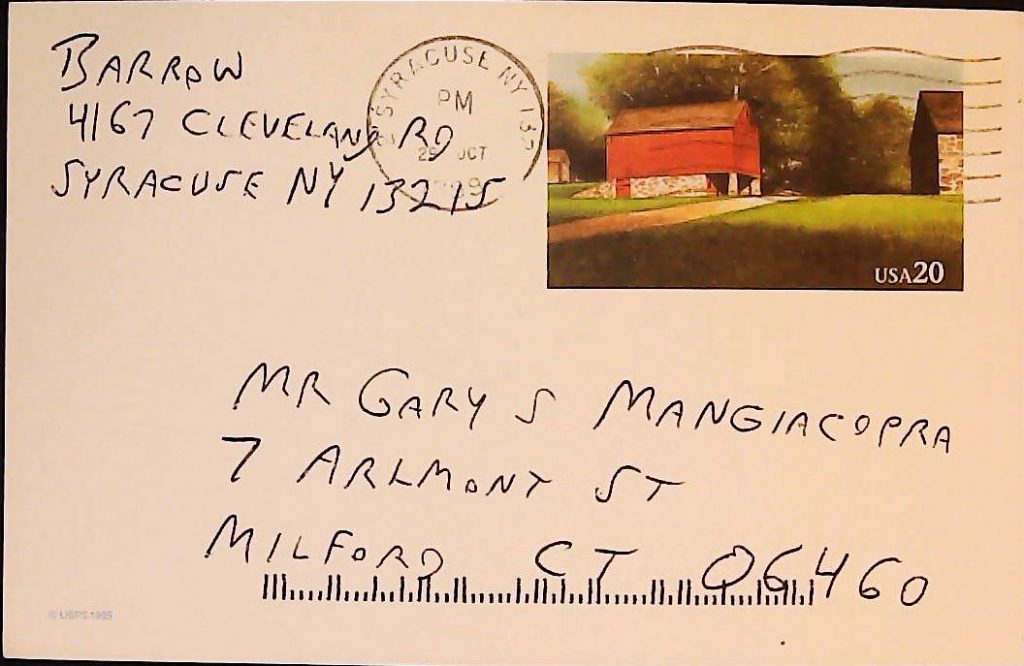 BARROW
4167 CLEVELAND RD
SYRACUSE NY 13215
SYRACUSE NY
PM
OCT
USA20
MR GARY S MANGIACOPRA
7 ARLMONT ST
MILFORD CT 06460
© USPS 1995